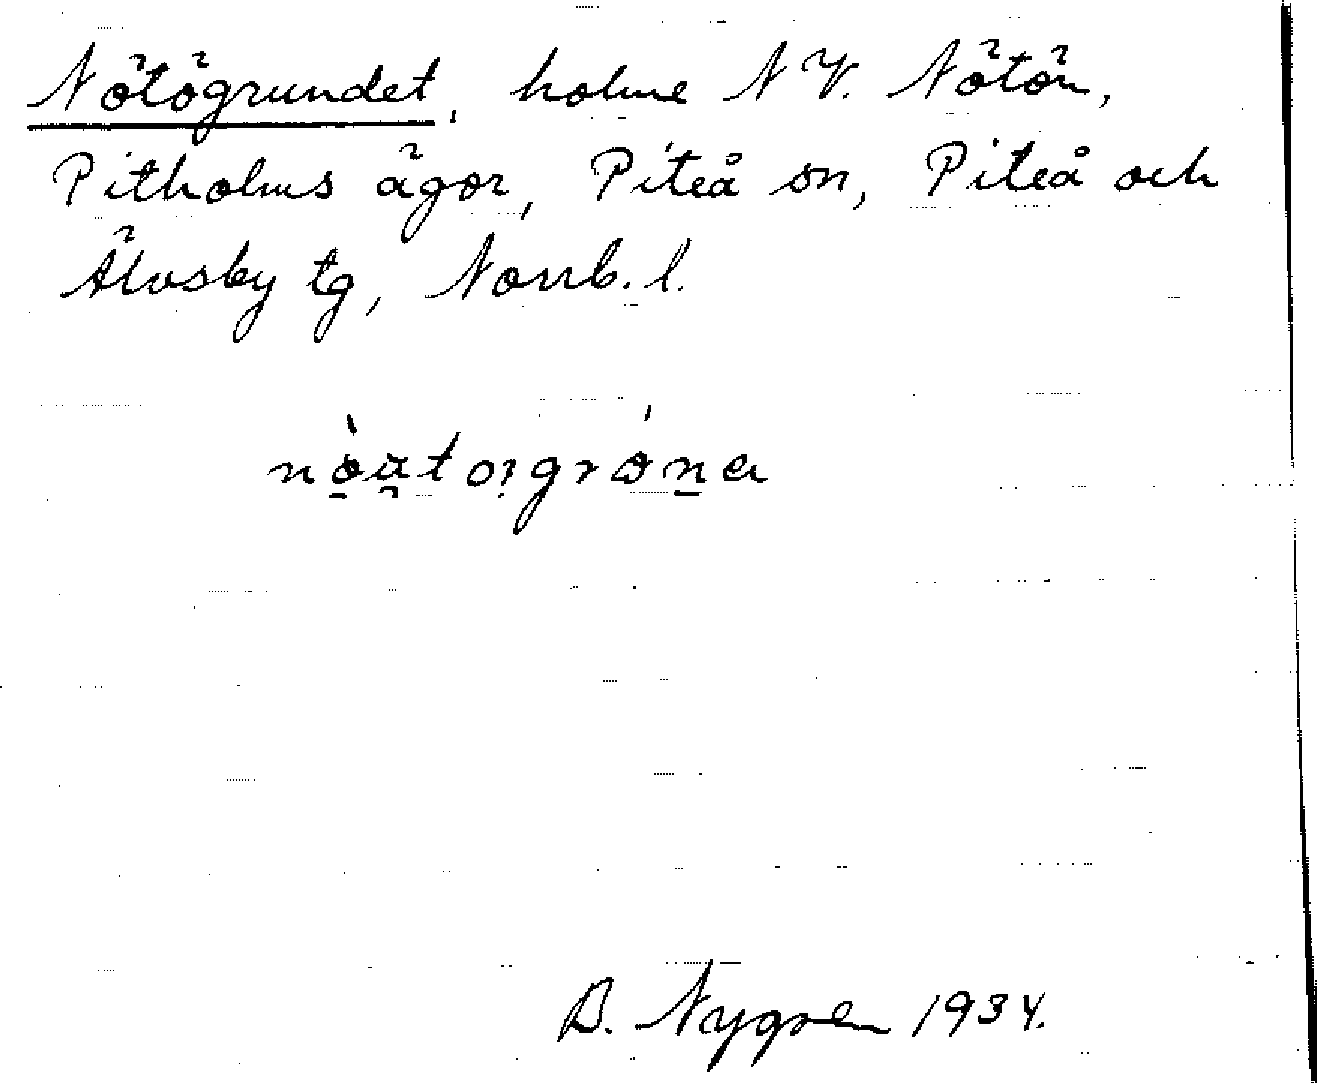 Nötögrundet, holme N V. Nötön,
Pitholms ägor, Piteå sn, Piteå och
Älvsby tg, Norrb. l.
B. Nygren 1934.